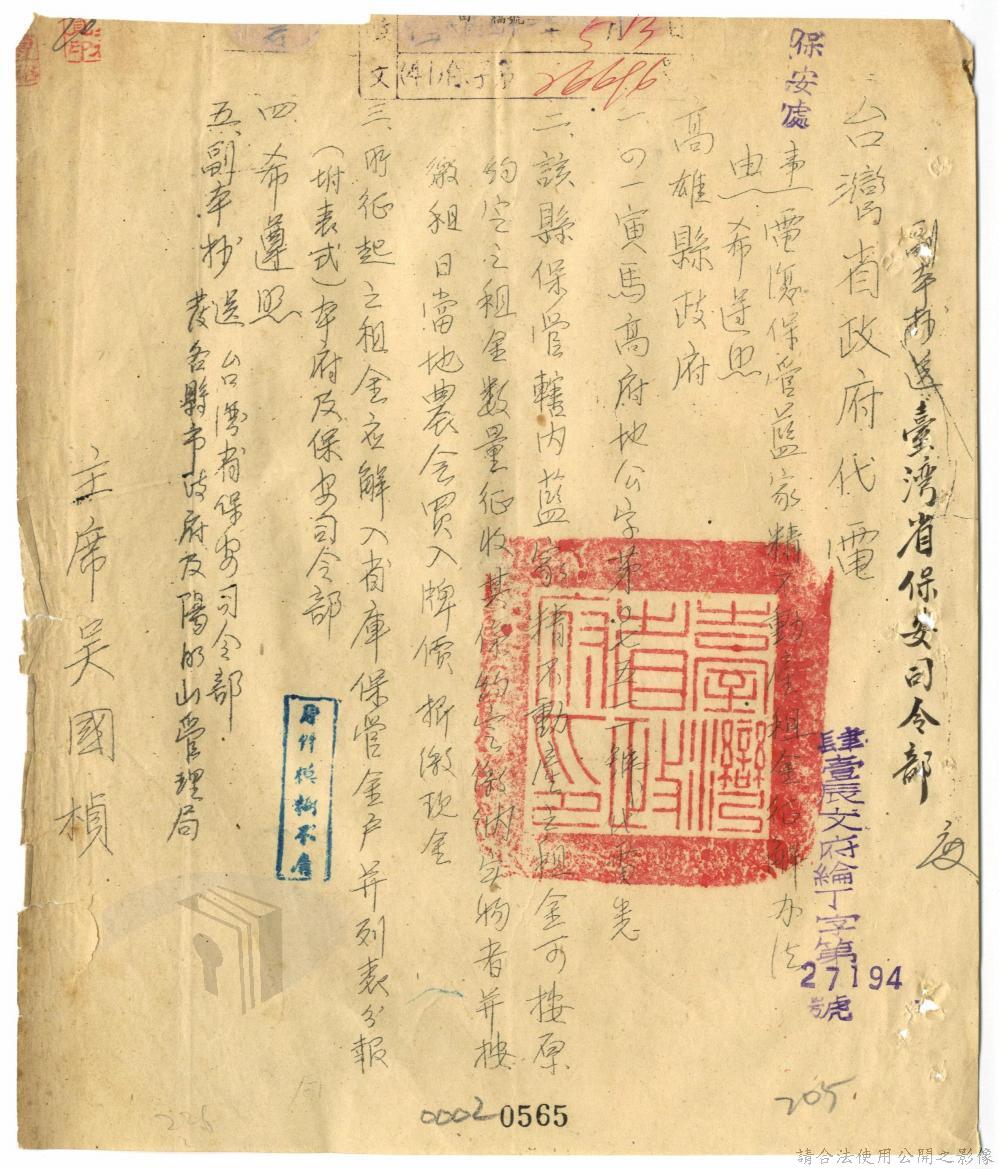 副本抄送臺灣省保安司令部
台灣省政府代電
保安處
肆壹辰文府綸丁字第27194號
事
由
電復保管藍家精不動產租金征解办法
希遵照
高雄縣政府
一、四一寅馬高府地公字第四七五一號代電悉
二、該縣保管轄内藍家精不動產之租金可按原
約定之租金数量征收其係約定繳納实物者并按
繳租日當地農会買入牌價折繳現金
三、所征起之租金应解入省庫保管金戶并列表分報
（坿表式）本府及保安司令部
四、希遵照
五、副本抄送台灣省保安司令部
發各縣市政府及陽明山管理局
主席吳國楨
臺灣省政府印
原件模糊不清
文
(41)
字第
5 13
26696
0002 0565
205
225
請合法使用公開之影像